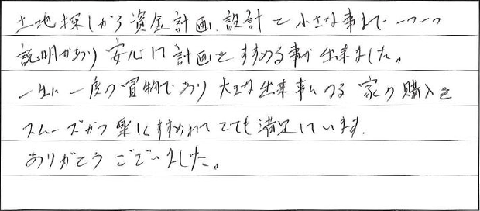 土地探しから資金計画、設計と小さな事まで一つ一つ
説明があり安心して計画をすすめる事が出来ました。
一生に一度の買物であり大きな出来事になる家の購入を
スムーズかつ楽しくすすめれてとても満足しています。
ありがとうございました。